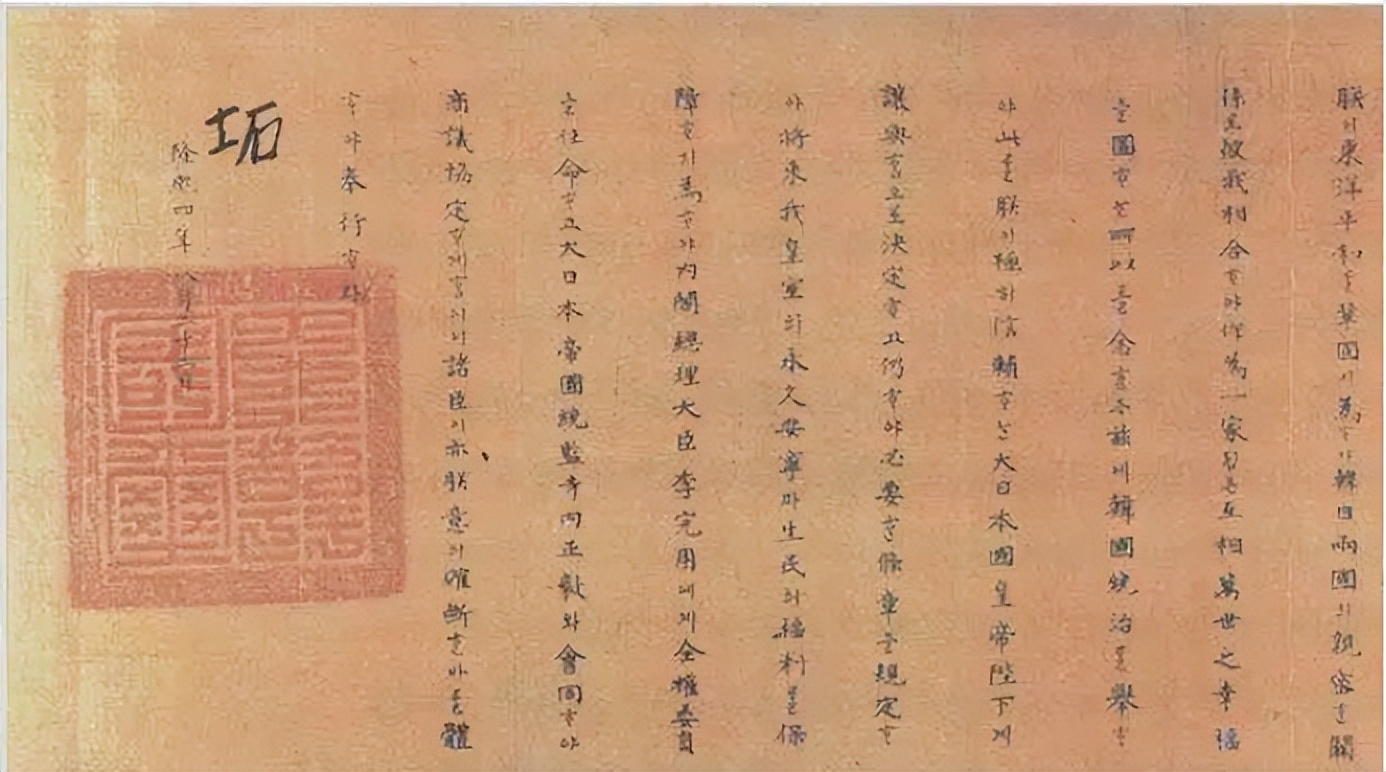 朕이 東洋平和를 鞏固키 爲ᄒᆞ야 韓日兩國의 親密ᄒᆞᆫ 關
係로 彼我相合ᄒᆞ야 作爲一家ᄂᆞᆫ 互相萬世之幸福
을 圖ᄒᆞᄂᆞᆫ 所以를 念 玆에 韓國統治를 擧ᄒᆞ
야 此를 朕이 極히 信賴ᄒᆞᄂᆞᆫ 大日本國皇帝陛下게
讓與 決定ᄒᆞ고 仍ᄒᆞ야 必要ᄒᆞᆫ 條章을 規定ᄒᆞ
야 將來我皇室의 永久安寧과 生民의 福利를 保
障ᄒᆞ기 爲ᄒᆞ야 內閣總理大臣李完用에게 全權委員
을 任命ᄒᆞ고 大日本帝國統監寺內正毅와 會同ᄒᆞ야
商議協定ᄒᆞ게 諸臣이 亦朕意의 確斷ᄒᆞᆫ바를 體
ᄒᆞ야 奉行ᄒᆞ라
坧
隆熙四年八月二十二日